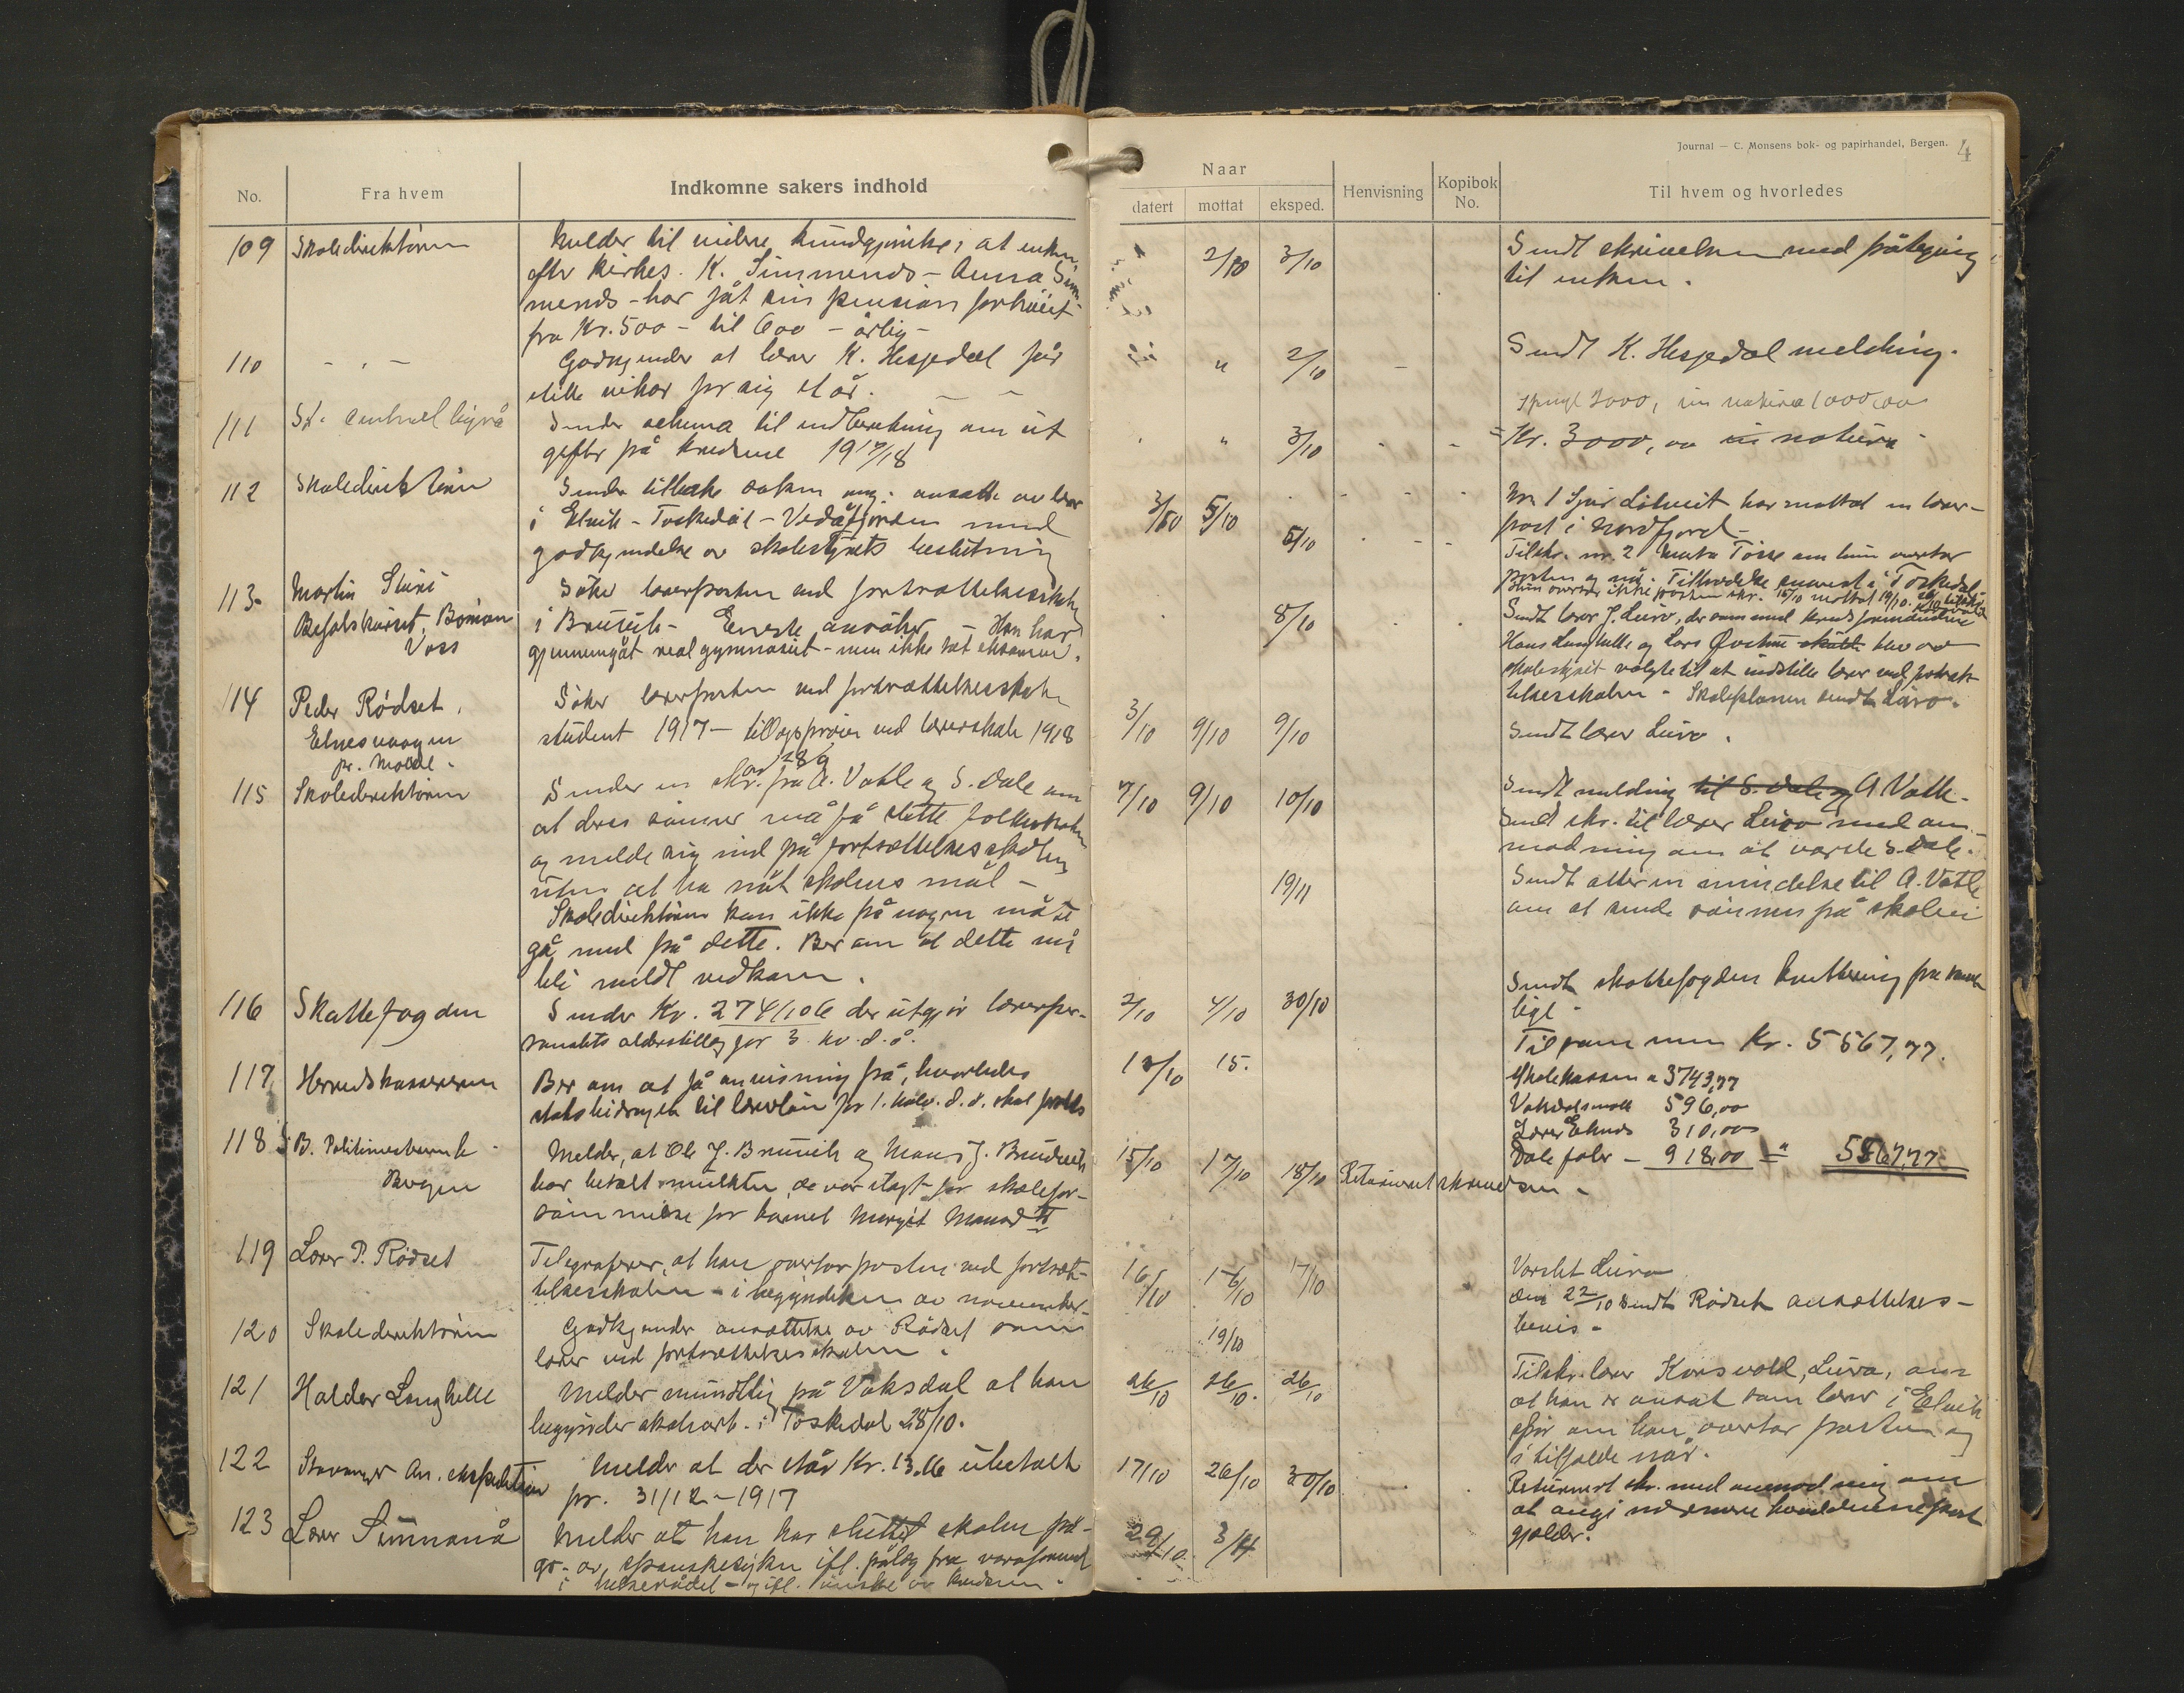 Journal — C. Monsens bok- og papirhandel, Bergen. 4
No. Fra hvem Indkomne sakers indhold
Naar
datert mottat eksped. Henvisning Kopibok No. Til hvem og hvorledes
109 Skoledirektøren
Melder til videre kundgjørelse, at enken
efter kirkes. K. Simmenes - Anna Sim-
menes - har fåt sin pension forhöiet
fra Kr. 500 - til 600 - årlig -
2/10 3/10
Sendt skrivelsen med påtegning
til enken.
110 - " -
Godkjender at lærer K. Hesjedal får
stille vikar for sig et år.
" 2/10
Sendt K. Hesjedal melding.
111 St. centralbyrå
Sender schema til indberetning om ut
gifter på kredsene 1917/18
" 3/10
3000, in natura 1000,00
Kr. 3000,00 in natura
112 Skoledirektören
Sender tilbake saken ang. ansætt. av lærer
i Eknik - Toskedal - Vedåfjorden med
godkjendelse av skolestyrets beslutning
3/10 5/10 5/10
Nr. 1 har mottat en lærer-
post i Nordfjord -
Tilskr. nr. 2 Marta Tösse om hun overtar
posten og når. Tiltrædelse snarest i Toskedal
Hun overtar ikke posten skr. 15/10 mottat 19/10.
113 Martin
Befalskurset, Bömoen
Voss
Söker lærerposten ved fortsættelsesskolen
i Bruvik - Eneste ansöker - Han har
gjennemgåt real gymnasiet - men ikke tat eksamen.
8/10
Sendt lærer J. Leiro, der sammen med
Hans Langhelle og Lars blev av
skolestyret valgte til at indstille lærer ved fortsæt-
telsesskolen - Skoleplanen sendt Leiro.
114 Peder Rödset,
Elnesvaagen
pr. Molde.
Söker lærerposten ved fortsættelsesskolen
student 1917 - tillægspröven ved lærerskole 1918
3/10 9/10 9/10
Sendt lærer Leiro.
115 Skoledirektören
av 28/9
Sender en skr. fra A. Vatle og S. Dale om
at deres sönner må få slutte folkeskolen
og melde sig ind på fortsættelsesskolen
uten at ha nåt skolens mål -
Skoledirektören kan ikke på nogen måte
gå med på dette. Ber om at dette må
bli meldt vedkom.
7/10 9/10 10/10
19/11
Sendt melding til S. Dale og A. Vatle.
Sendt skr. til lærer Leiro med an-
modning om at varsle S. Dale.
Sendt atter en mindelse til A. Vatle
om at sende sönnen på skolen
116 Skattefogden
Sender Kr. 2741,06 der utgjör lærerper-
sonalets alderstillæg for 3 kv. d. å.
2/10 4/10 30/10
Sendt skattefogden kvittering
117 Herredskassereren
Ber om at få anvisning på, hvorledes
statsbidraget til lærerlön for 1. halv. d. å. skal
12/10 15.
Tilsammen Kr. 5567,77.
Skolekassen a 3743,77
596,00
Lærer 310,00
Dale fabr - 918,00 = " 5567,77
118 Politimesteren
Bergen
Melder, at Ole J. Bruvik og Mons J. Bruvik
har betalt mulkten, de var ilagt for skolefor-
sömmelse for barnet Margit
15/10 17/10 18/10
Returnert skrivelsen -
119 Lærer P. Rödset
Telegraferer, at han overtar posten ved fortsæt-
telsesskolen - i begyndelsen av november.
16/10 16/10 17/10
Varslet Leiro
den 22/10 sendt Rödset ansættelses-
bevis -
120 Skoledirektören
Godkjender ansættelse av Rödset som
lærer ved fortsættelsesskolen.
19/10
121 Haldor Langhelle
Melder mundtlig på Vaksdal at han
begynder skolearb. i Toskedal 28/10.
26/10 26/10. 26/10
Tilskr. lærer Korsvold, Leiro, om
at han er ansat som lærer i Eknik
spör om han overtar posten og
i tilfælde når.
122 Stavanger An. ekspedition
Melder at der står Kr. 13.16 ubetalt
pr. 31/12-1917
17/10 26/10 30/10
Returnert skr. med anmodning om
at angi
gjælder.
123 Lærer Simmenå
Melder at han har sluttet skolen på
gr. av spanskesyken ifl. pålæg fra varaformand
i helserådet - og ifl. önske av kredsen.
29/10. 3/11